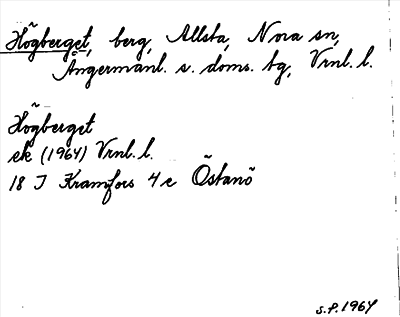 Högberget, berg, Allsta, Nora sn,
Ångermanl. s. doms. tg, Vrnl. l.
Högberget
ek (1964) Vrnl. l.
18 J Kramfors 4 c Östanö
S.P. 1964